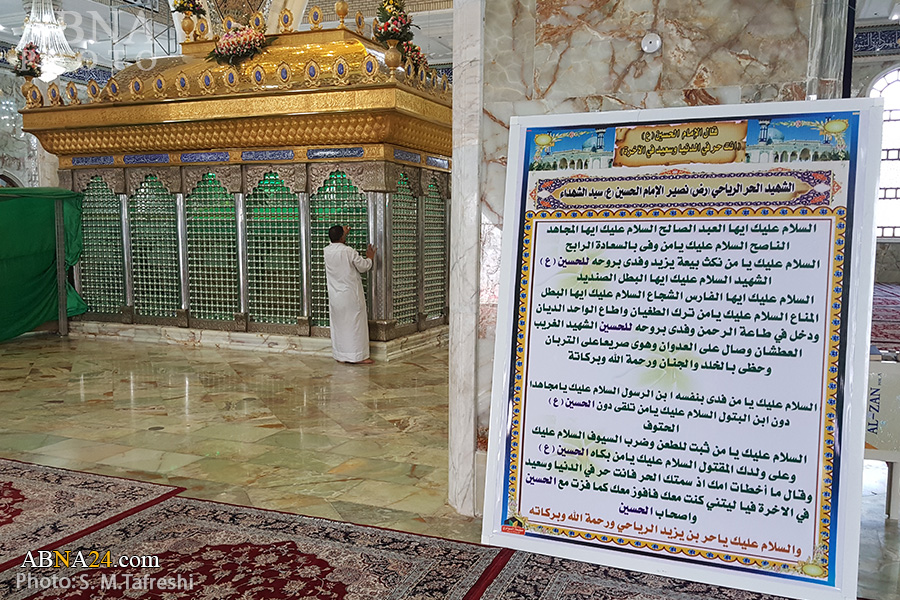 ABNA
PHOTO
قال الإمام الحسين (ع)
(انك حر في الدنيا وسعيد في الآخرة)
الشهيد الحر الرياحي (رض) نصير الإمام الحسين (ع) سيد الشهداء
السلام عليك ايها العبد الصالح السلام عليك ايها المجاهد
الناصح السلام عليك يامن وفى بالسعادة الرابح
السلام عليك يا من نكث بيعة يزيد وفدى بروحه للحسين (ع)
الشهيد السلام عليك ايها البطل الصنديد
السلام عليك ايها الفارس الشجاع السلام عليك ايها البطل
المناع السلام عليك يامن ترك الطغيان واطاع الواحد الديان
ودخل في طاعة الرحمن وفدى بروحه للحسين الشهيد الغريب
العطشان وصال على العدوان وهوى صريعا على التربان
وحظى بالخلد والجنان ورحمة الله وبركاتة
السلام عليك يا من فدى بنفسه ابن الرسول السلام عليك يامجاهدا
دون ابن البتول السلام عليك يامن تلقى دون الحسين (ع)
الحتوف
السلام عليك يا من ثبت للطعن وضرب السيوف السلام عليك
وعلى ولدك المقتول السلام عليك يامن بكاه الحسين (ع)
وقال ما أخطأت امك اذ سمتك الحر فانت حر في الدنيا وسعيد
في الاخرة فيا ليتني كنت معك فافوز معك كما فزت مع الحسين
واصحاب الحسين
والسلام عليك ياحر بن يزيد الرياحي ورحمة الله وبركاته
AL-ZAN
ABNA24.com
Photo: S. M.Tafreshi